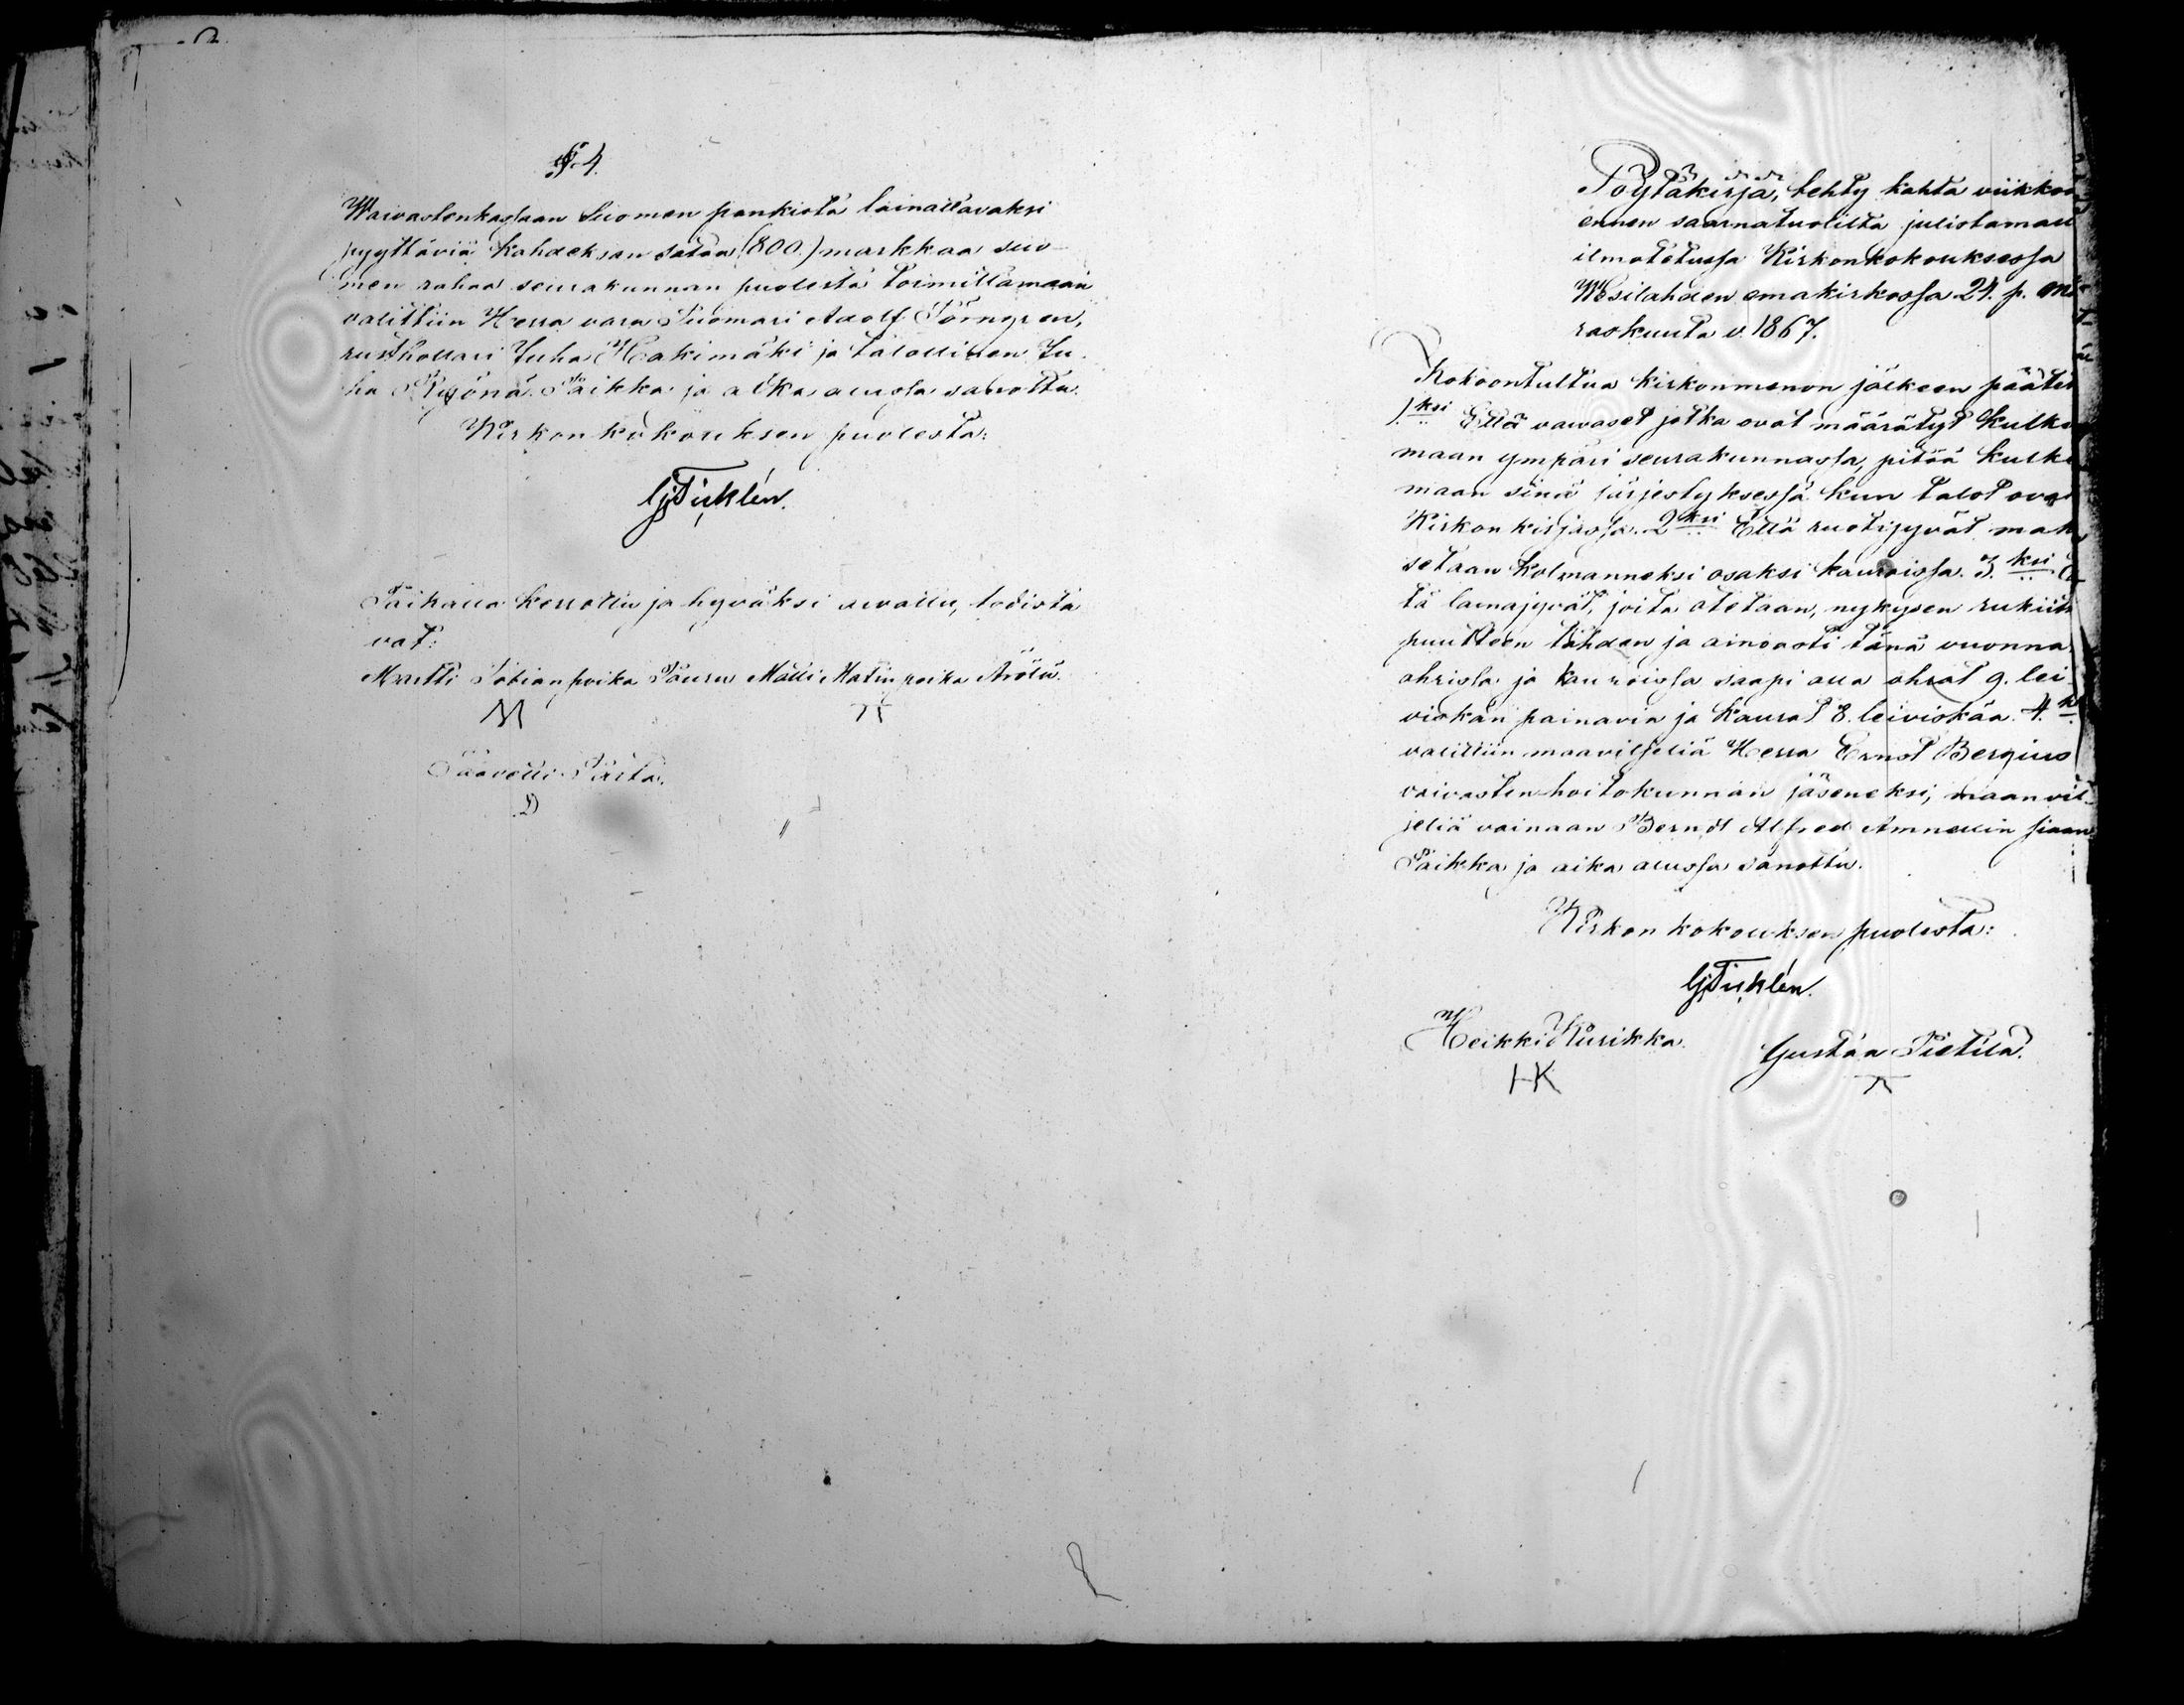 §. 4.
Waivastenkassaan Suomen pankista lainattavaksi
pyyttäviä kahdeksan sataa (800.) markkaa suo-
men rahaa seurakunnan puolesta toimittamaan
valittiin Herra vara Tuomari Adolf Törngren,
rusthollari Juha Hakimäki ja talollinen Ju-
ha Ryönä. Paikka ja aika alussa sanottu.
Kirkonkokouksen puolesta:
Paikalla kerrottu ja hyväksi suvattu, todista
vat:
Martti Tobianpoika Matti Matinpoika
M
Paavotti
Pöytäkirja, tehty kahta viikkoa
ennen saarnatuolilta julistaman
ilmotetussa Kirkonkokouksessa
Wesilahden emäkirkossa 24. p. mar
raskuuta v. 1867.
Kokoontultua kirkonmenon jälkeen päätet
1 ksi Että vaivaset jotka ovat määrätyt kulke
maan ympäri seurakunnassa, pitää kulke
maan siinä järjestyksessä kun talot ovat
Kirkonkirjassa. 2 ksi Että ruotijyvät mak
setaan kolmanneksi osaksi kauroissa. 3. ksi Et
tä lainajyvät, joita otetaan, nykysen rukiin
puutteen tähden ja ainoasti tänä vuonna
ohrissa ja kauroissa saapi olla ohrat 9. lei-
viskän painavia ja kaurat 8. leiviskää. 4. k
valittiin maaviljeliä Herra Ernst Bergius
vaivastenhoitokunnan jäseneksi, maanvil-
jeliä vainaan Bernd Alfred Amnellin siaan
Paikka ja aika alussa sanottu.
Kirkon kokouksen puolesta:
Heikki Kurikka. Gustaa Pietilä.
HK